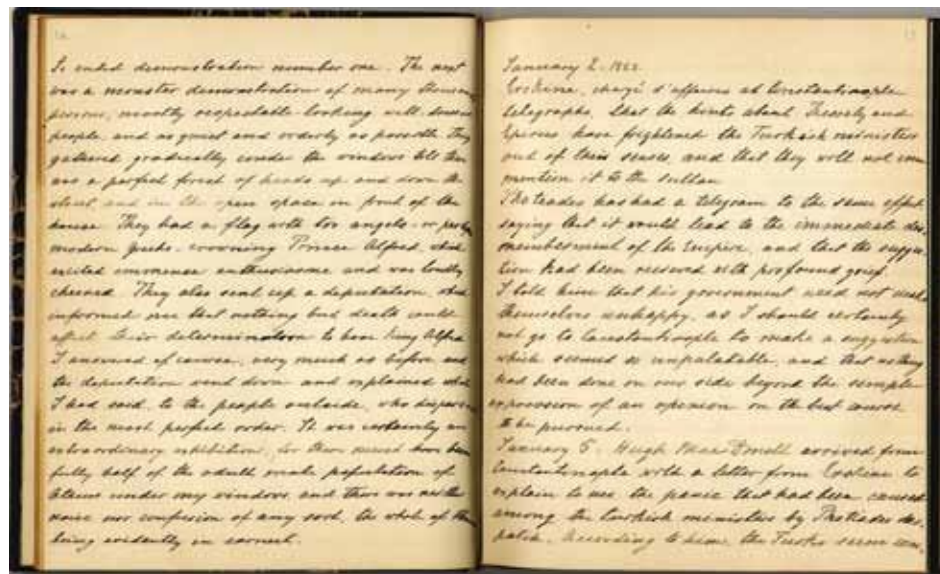 So ended demonstration number one. The next
was a monster demonstration of many thousand
persons, mostly respectable-looking well-dressed
people, and as quiet and orderly as possible. They
gathered gradually under the windows till there
was a perfect forest of heads up and down the
street and in the open space in front of the
house. They had a flag with two angels, or perhaps
modern Greeks, crowning Prince Alfred, which
excited immense enthusiasm and was loudly
cheered. They also sent up a deputation, which
informed me that nothing but death would
affect their determination to have King Alfred
I answered of course, very much as before and
the deputation went down and explained what
I had said, to the people outside, who dispersed
in the most perfect order. It was certainly an
extraordinary exhibition, for there must have been
fully half of the adult male population of
Athens under my windows, and there was neither
noise nor confusion of any sort, the whole of them
being evidently in earnest.
January 2. 1863
Erskine, chargé d'affaires at Constantinople
telegraphs, that the hints about Thessaly and
Epirus have frightened the Turkish ministers
out of their senses, and that they will not even
mention it to the Sultan
Photiades has had a telegram to the same effect
saying that it would lead to the immediate dis-
memberment of the Empire, and that the sugges-
tion had been received with profound grief
I told him that his government need not make
themselves unhappy, as I should certainly
not go to Constantinople to make a suggestion
which seemed so unpalatable, and that nothing
had been done on our side beyond the simple
expression of an opinion on the best course
to be pursued.
January 5. Hugh MacDonell arrived from
Constantinople with a letter from Erskine to
explain to me the panic that had been caused
among the Turkish ministers by Photiades des-
patch. According to him, the Turks seem con-